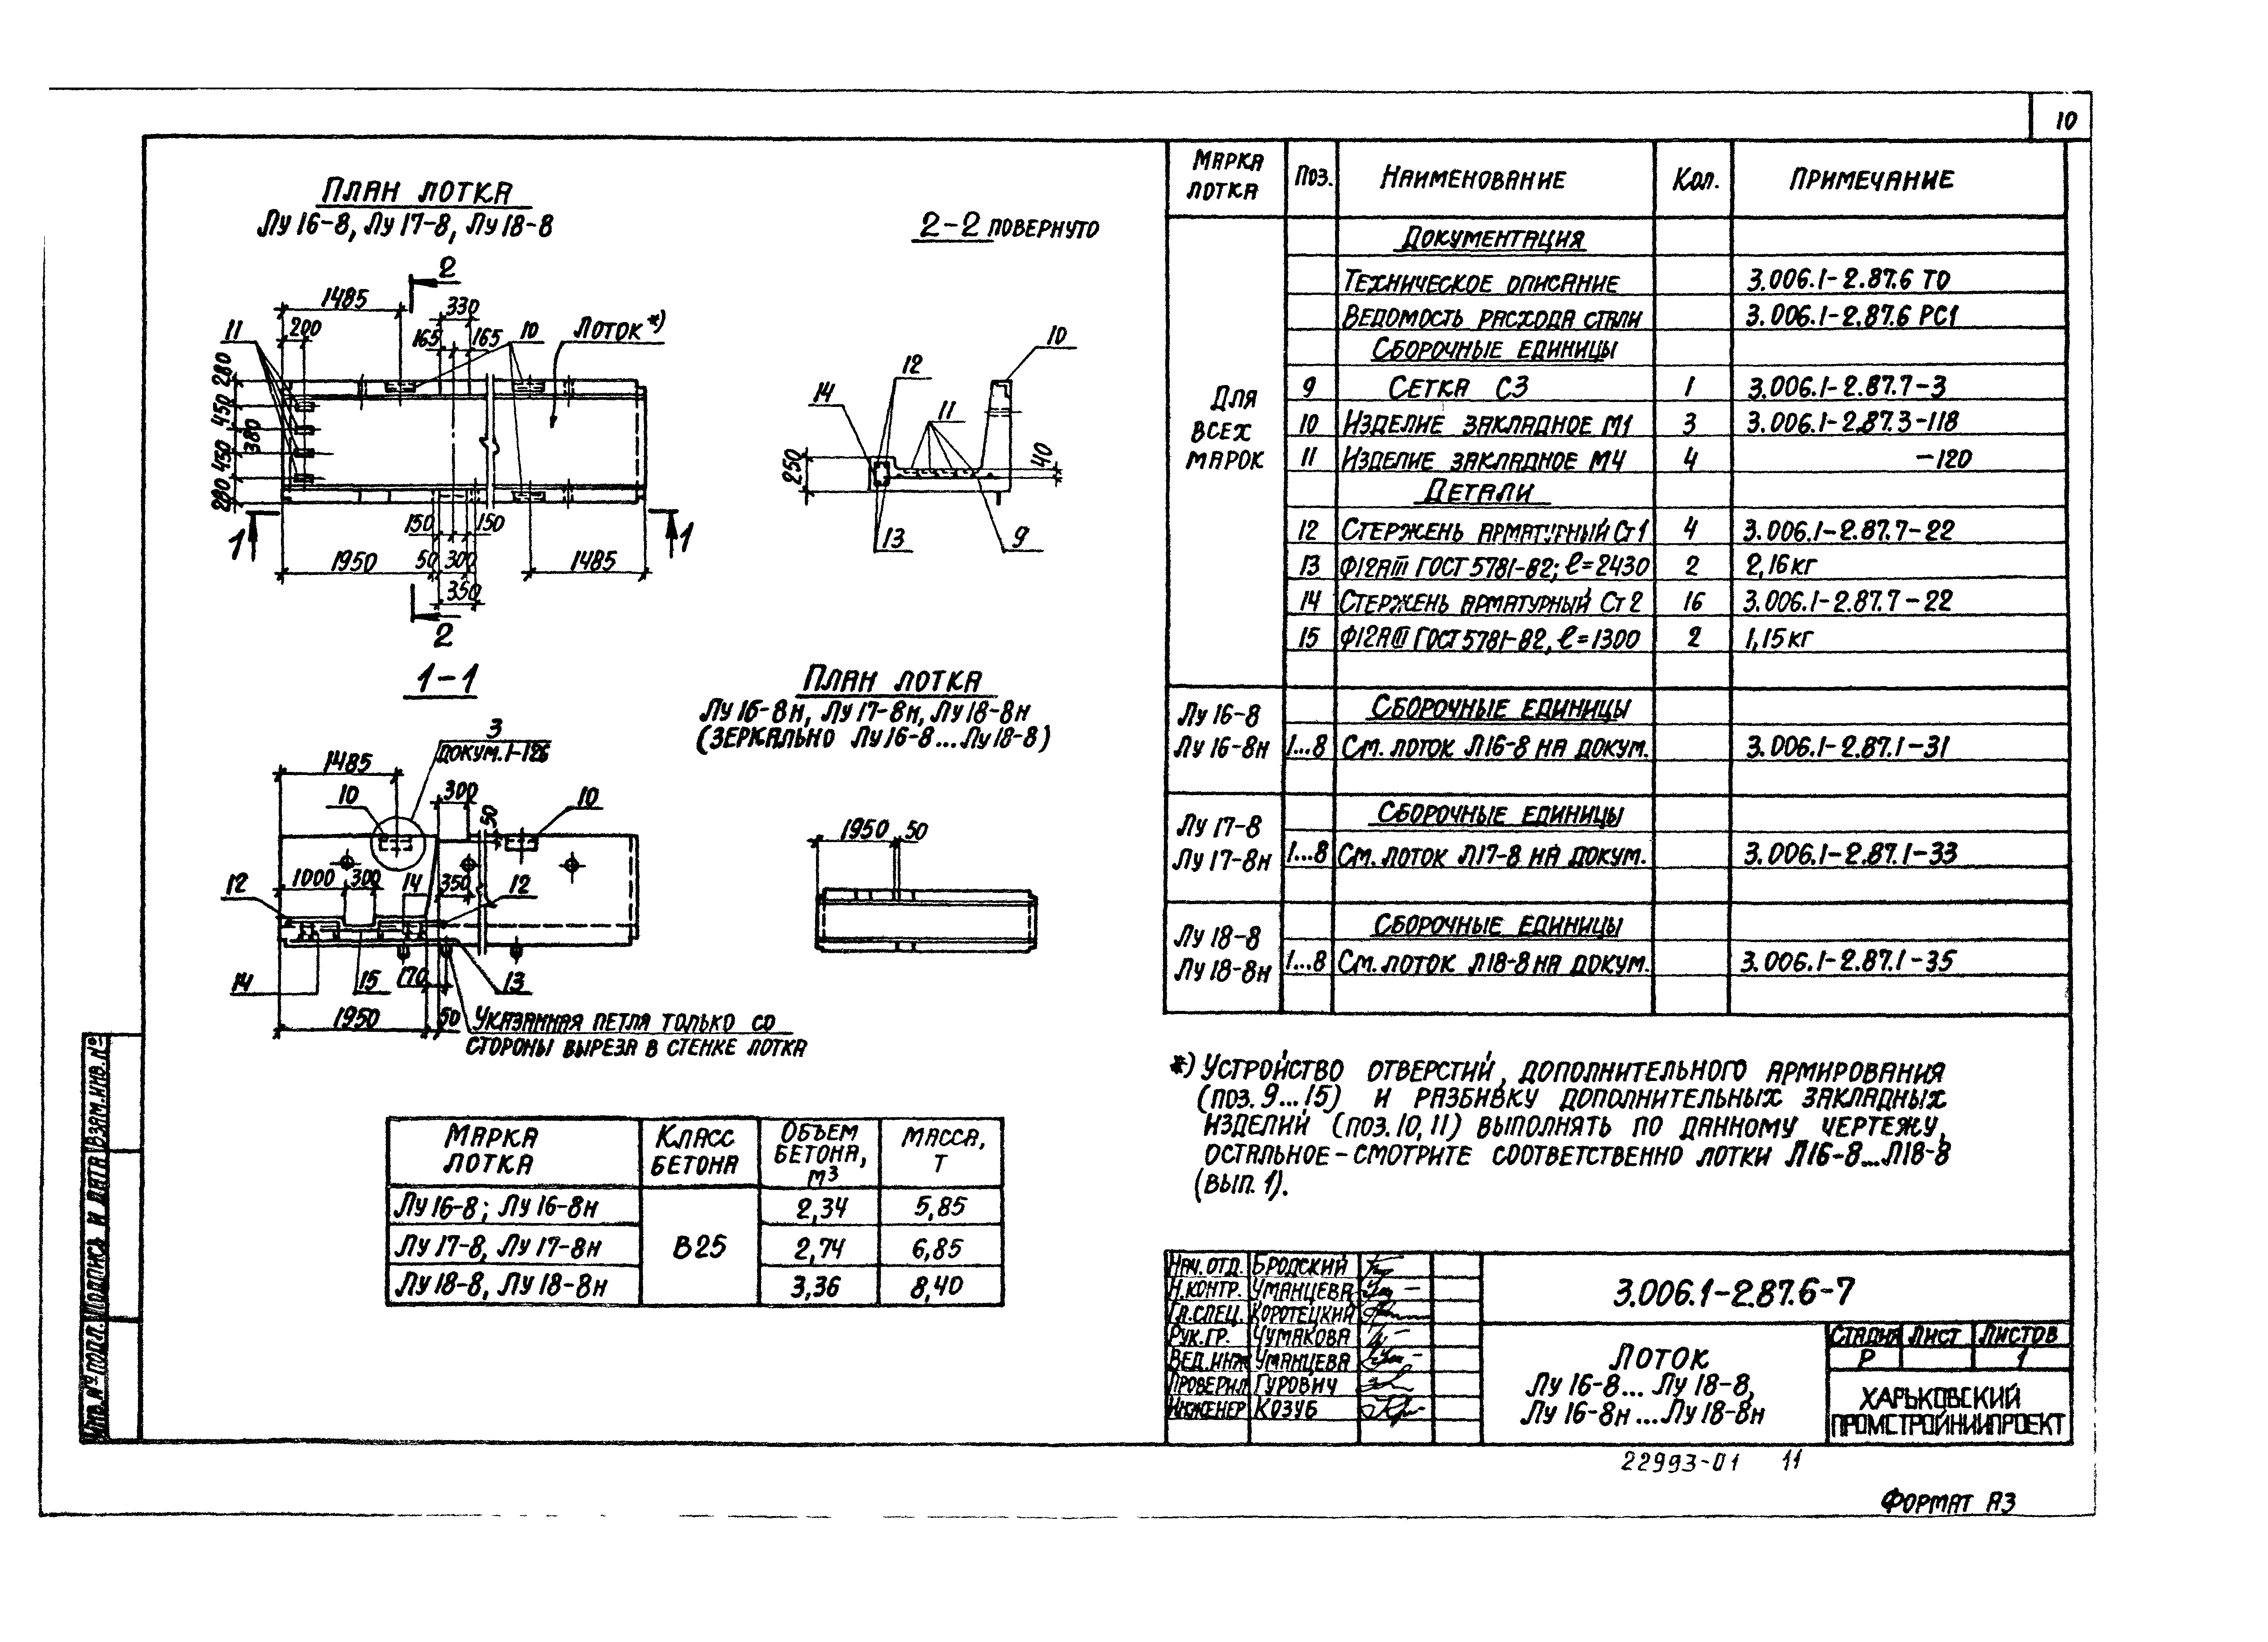 10
План лотка
Лу 16-8, Лу 17-8, Лу 18-8
2
1485
330
11
200
165
165
10
Лоток*)
280
450
380
450
280
150
150
1
1
1950
50
300
1485
350
2
2-2 повернуто
10
12
14
11
250
40
13
9
1-1
3
докум.1-126
1485
10
300
50
10
1000
300
14
350
12
12
14
15
170
13
1950
50
Указанная петля только со
стороны выреза в стенке лотка
План лотка
Лу 16-8н, Лу 17-8н, Лу 18-8н
(зеркально Лу 16-8...Лу 18-8)
1950
50
Марка лотка | Класс бетона | Объем бетона, м3 | Масса, т
Лу 16-8; Лу 16-8н | В25 | 2,34 | 5,85
Лу 17-8, Лу 17-8н | 2,74 | 6,85
Лу 18-8, Лу 18-8н | 3,36 | 8,40
Марка лотка | Поз. | Наименование | Кол. | Примечание
Для всех марок
Документация
Техническое описание | 3.006.1-2.87.6 ТО
Ведомость расхода стали | 3.006.1-2.87.6 РС1
Сборочные единицы
9 | Сетка С3 | 1 | 3.006.1-2.87.7-3
10 | Изделие закладное М1 | 3 | 3.006.1-2.87.3-118
11 | Изделие закладное М4 | 4 | -120
Детали
12 | Стержень арматурный Ст1 | 4 | 3.006.1-2.87.7-22
13 | Ф12АIII ГОСТ 5781-82; ℓ=2430 | 2 | 2,16кг
14 | Стержень арматурный Ст2 | 16 | 3.006.1-2.87.7-22
15 | Ф12АIII ГОСТ 5781-82, ℓ=1300 | 2 | 1,15кг
Лу 16-8 | Сборочные единицы
Лу 16-8н | 1...8 | См. лоток Л16-8 на докум. | 3.006.1-2.87.1-31
Лу 17-8 | Сборочные единицы
Лу 17-8н | 1...8 | См. лоток Л17-8 на докум. | 3.006.1-2.87.1-33
Лу 18-8 | Сборочные единицы
Лу 18-8н | 1...8 | См. лоток Л18-8 на докум. | 3.006.1-2.87.1-35
*) Устройство отверстий, дополнительного армирования
(поз. 9...15) и разбивку дополнительных закладных
изделий (поз. 10, 11) выполнять по данному чертежу,
остальное - смотрите соответственно лотки Л16-8...Л18-8
(вып. 1).
Нач. отд. Бродский
Н.контр. Уманцева
Гл.спец. Коротецкий
Рук.гр. Чумакова
Вед.инж Уманцева
Проверил Гурович
Инженер Козуб
3.006.1-2.87.6-7
Лоток
Лу 16-8... Лу 18-8,
Лу 16-8н ...Лу 18-8н
Стадия Лист Листов
Р 1
Харьковский
Промстройниипроект
22993-01 11
Формат А3
Инв.№подл. Подпись и дата Взам.инв.№